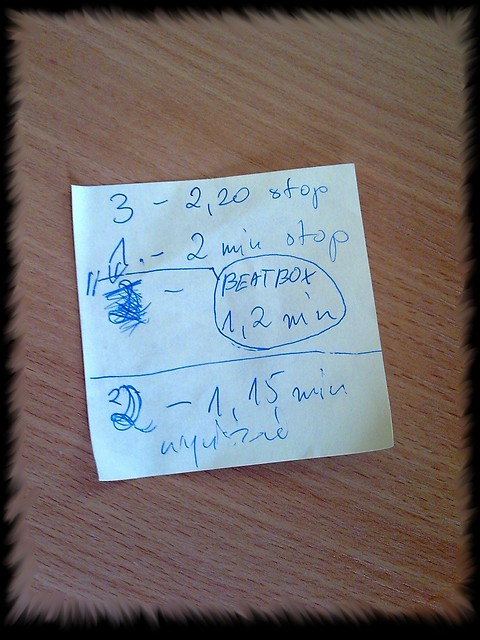 3 - 2,20 stop
1. - 2 min stop
- BEATBOX
1,2 min
2 - 1,15 min